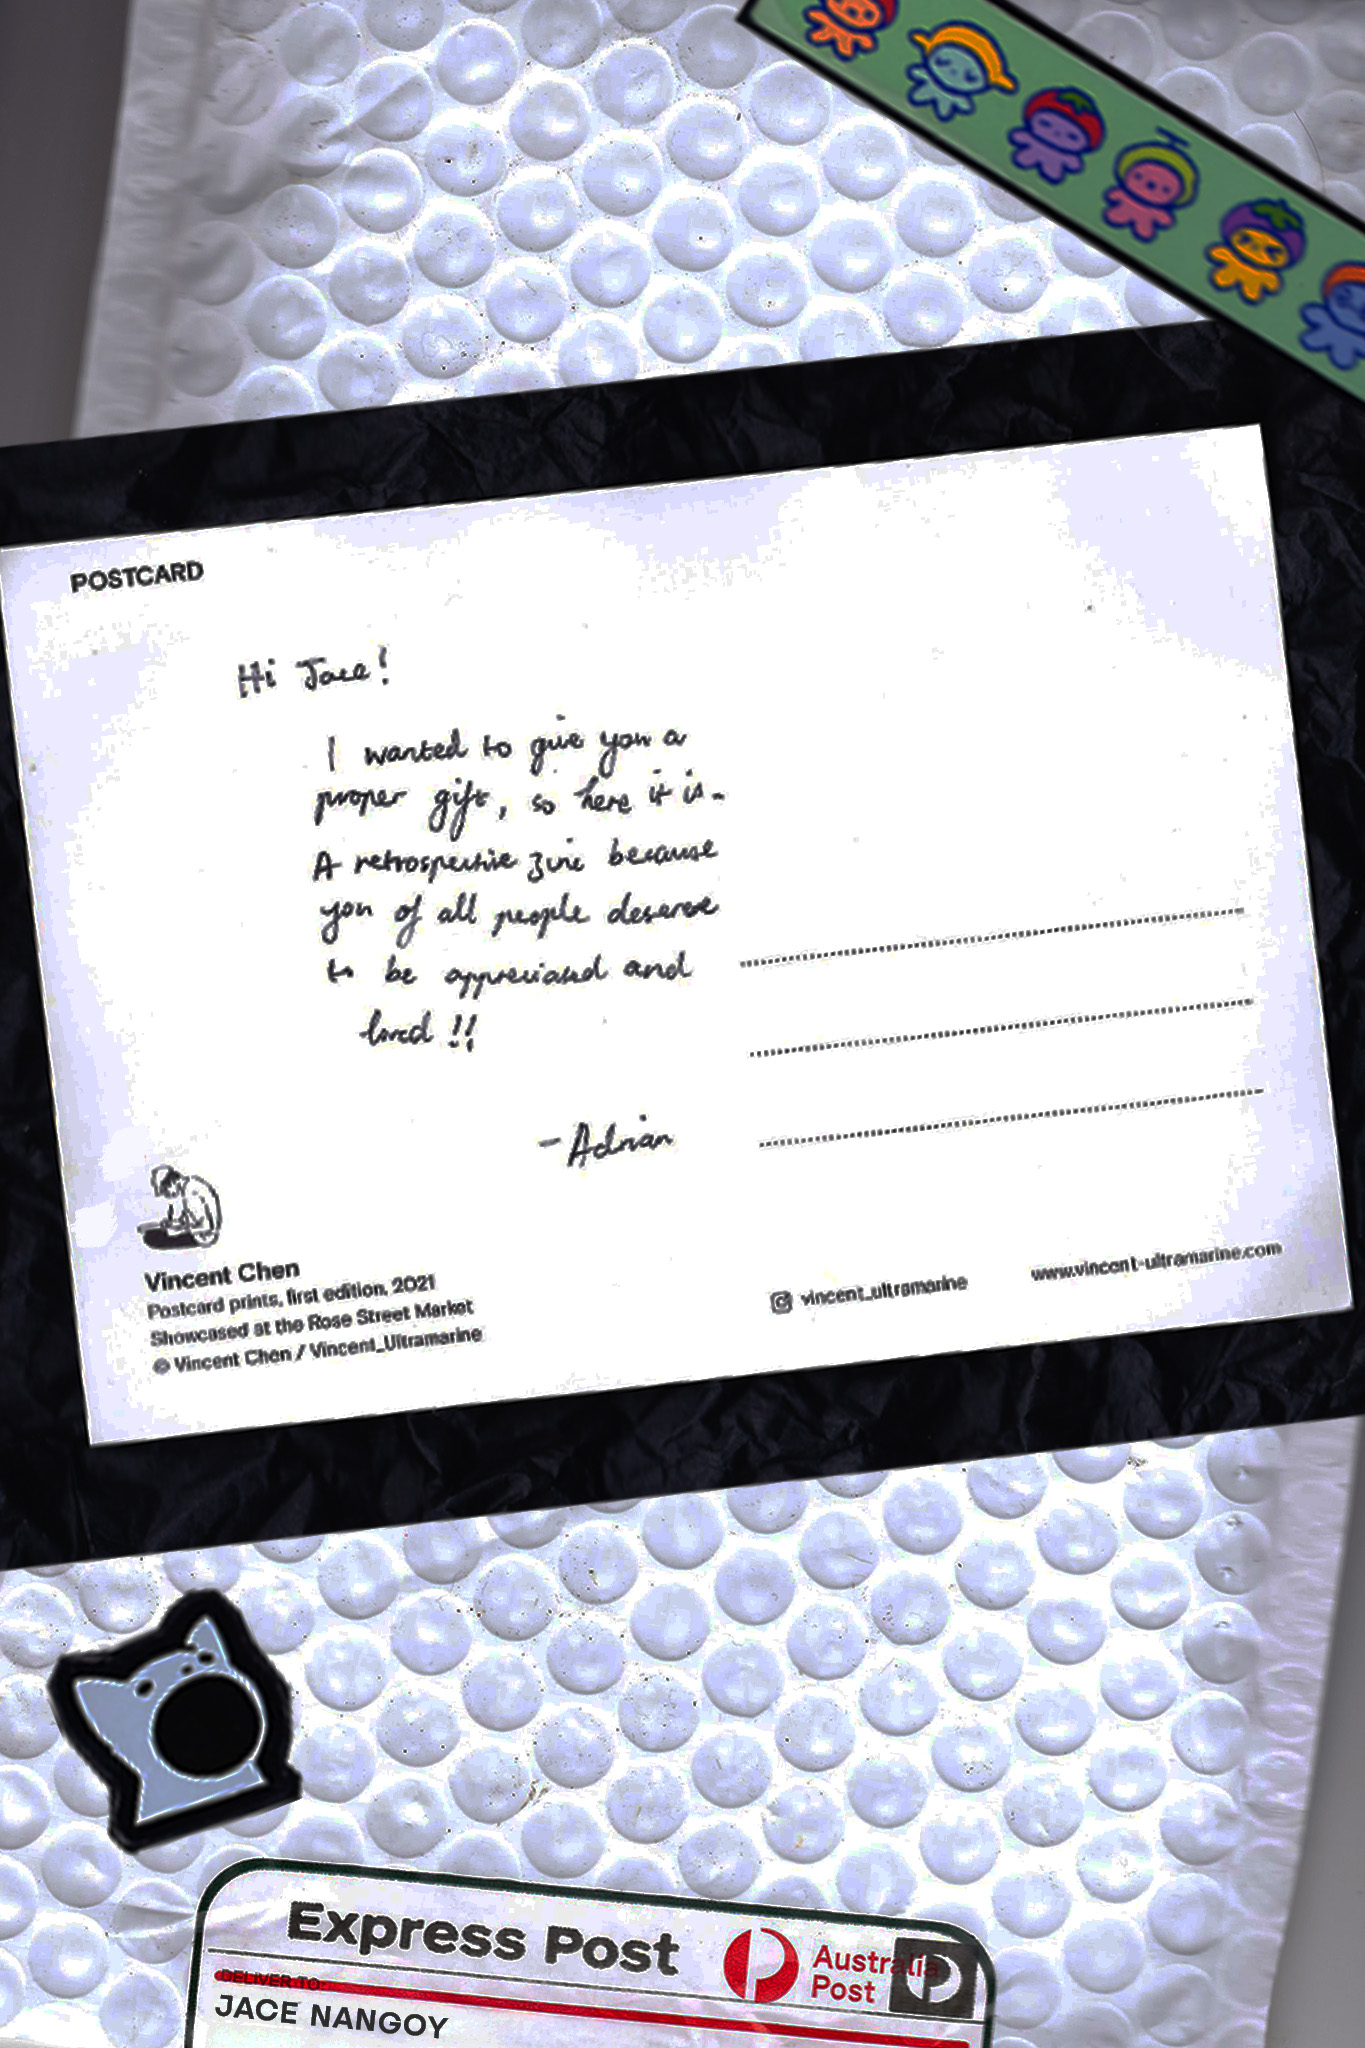 POSTCARD
Hi Jace!
I wanted to give you a
proper gift, so here it is.
A retrospective zine because
you of all people deserve
to be appreciated and
loved !!
-Adrian
Vincent Chen
Postcard prints, first edition, 2021
Showcased at the Rose Street Market
© Vincent Chen / Vincent_Ultramarine
vincent_ultramarine
www.vincent-ultramarine.com
Express Post
Australia
Post
DELIVER TO:
JACE NANGOY